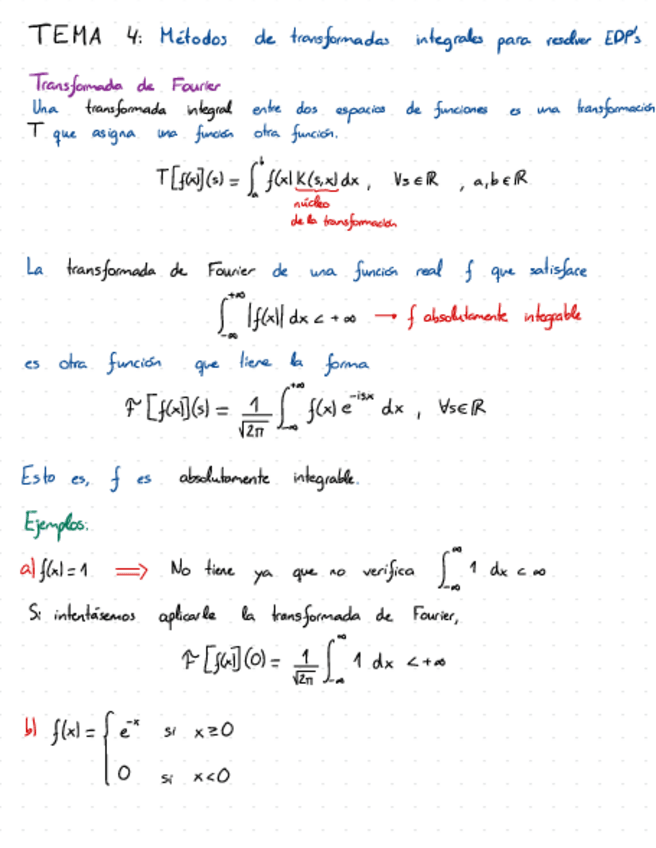 TEMA 4: Métodos de transformadas integrales para resolver EDP's
Transformada de Fourier
Una transformada integral entre dos espacios de funciones es una transformación
T que asigna una función otra función.
T[f(x)](s) = ∫_a^b f(x) K(s,x) dx , ∀s∈ℝ , a,b∈ℝ
núcleo
de la transformación
La transformada de Fourier de una función real f que satisface
∫_{-∞}^{+∞} |f(x)| dx < +∞ → f absolutamente integrable
es otra función que tiene la forma
F[f(x)](s) = 1/√2π ∫_{-∞}^{+∞} f(x) e^{-isx} dx , ∀s∈ℝ
Esto es, f es absolutamente integrable.
Ejemplos:
a) f(x) = 1 ⟹ No tiene ya que no verifica ∫_{-∞}^{∞} 1 dx < ∞
Si intentásemos aplicarle la transformada de Fourier,
F[f(x)](0) = 1/√2π ∫_{-∞}^{∞} 1 dx < +∞
b) f(x) = { e^{-x} si x≥0
0 si x<0